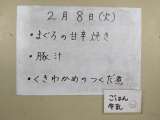 2月8日(火)
・まぐろの甘辛焼き
・豚汁
・くきわかめのつくだ煮
ごはん
牛乳